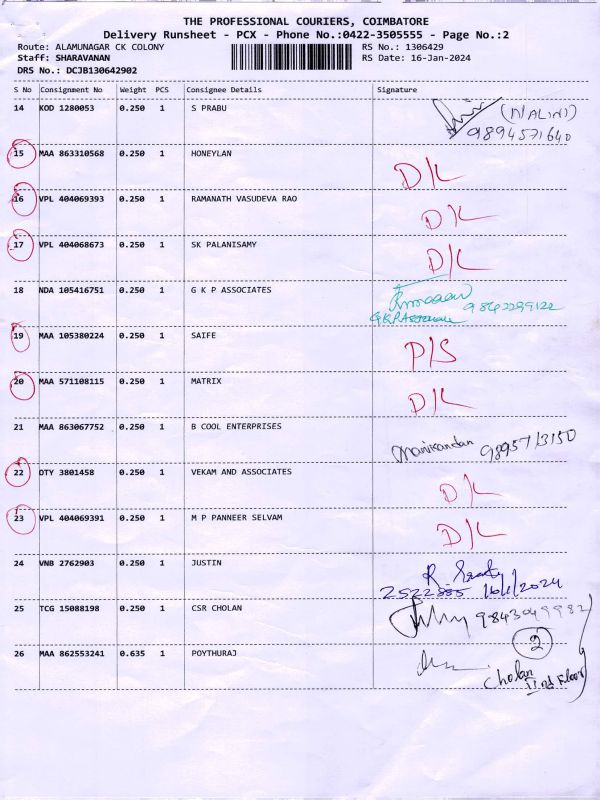 THE PROFESSIONAL COURIERS, COIMBATORE
Delivery Runsheet - PCX - Phone No.:0422-3505555 - Page No.:2
Route: ALAMUNAGAR CK COLONY RS No.: 1306429
Staff: SHARAVANAN RS Date: 16-Jan-2024
DRS No.: DCJB130642902
S No Consignment No Weight PCS Consignee Details Signature
14 KOD 1280053 0.250 1 S PRABU (NALINI)
9894571640
15 MAA 863310568 0.250 1 HONEYLAN D/L
16 VPL 404069393 0.250 1 RAMANATH VASUDEVA RAO D/L
17 VPL 404068673 0.250 1 SK PALANISAMY D/L
18 NDA 105416751 0.250 1 G K P ASSOCIATES
19 MAA 105380224 0.250 1 SAIFE P/S
20 MAA 571108115 0.250 1 MATRIX D/L
21 MAA 863067752 0.250 1 B COOL ENTERPRISES Manikandan
22 DTY 3801458 0.250 1 VEKAM AND ASSOCIATES D/L
23 VPL 404069391 0.250 1 M P PANNEER SELVAM D/L
24 VNB 2762903 0.250 1 JUSTIN
16/1/2024
25 TCG 15088198 0.250 1 CSR CHOLAN 9843049982
2
26 MAA 862553241 0.635 1 POYTHURAJ
Cholan
IInd Floor